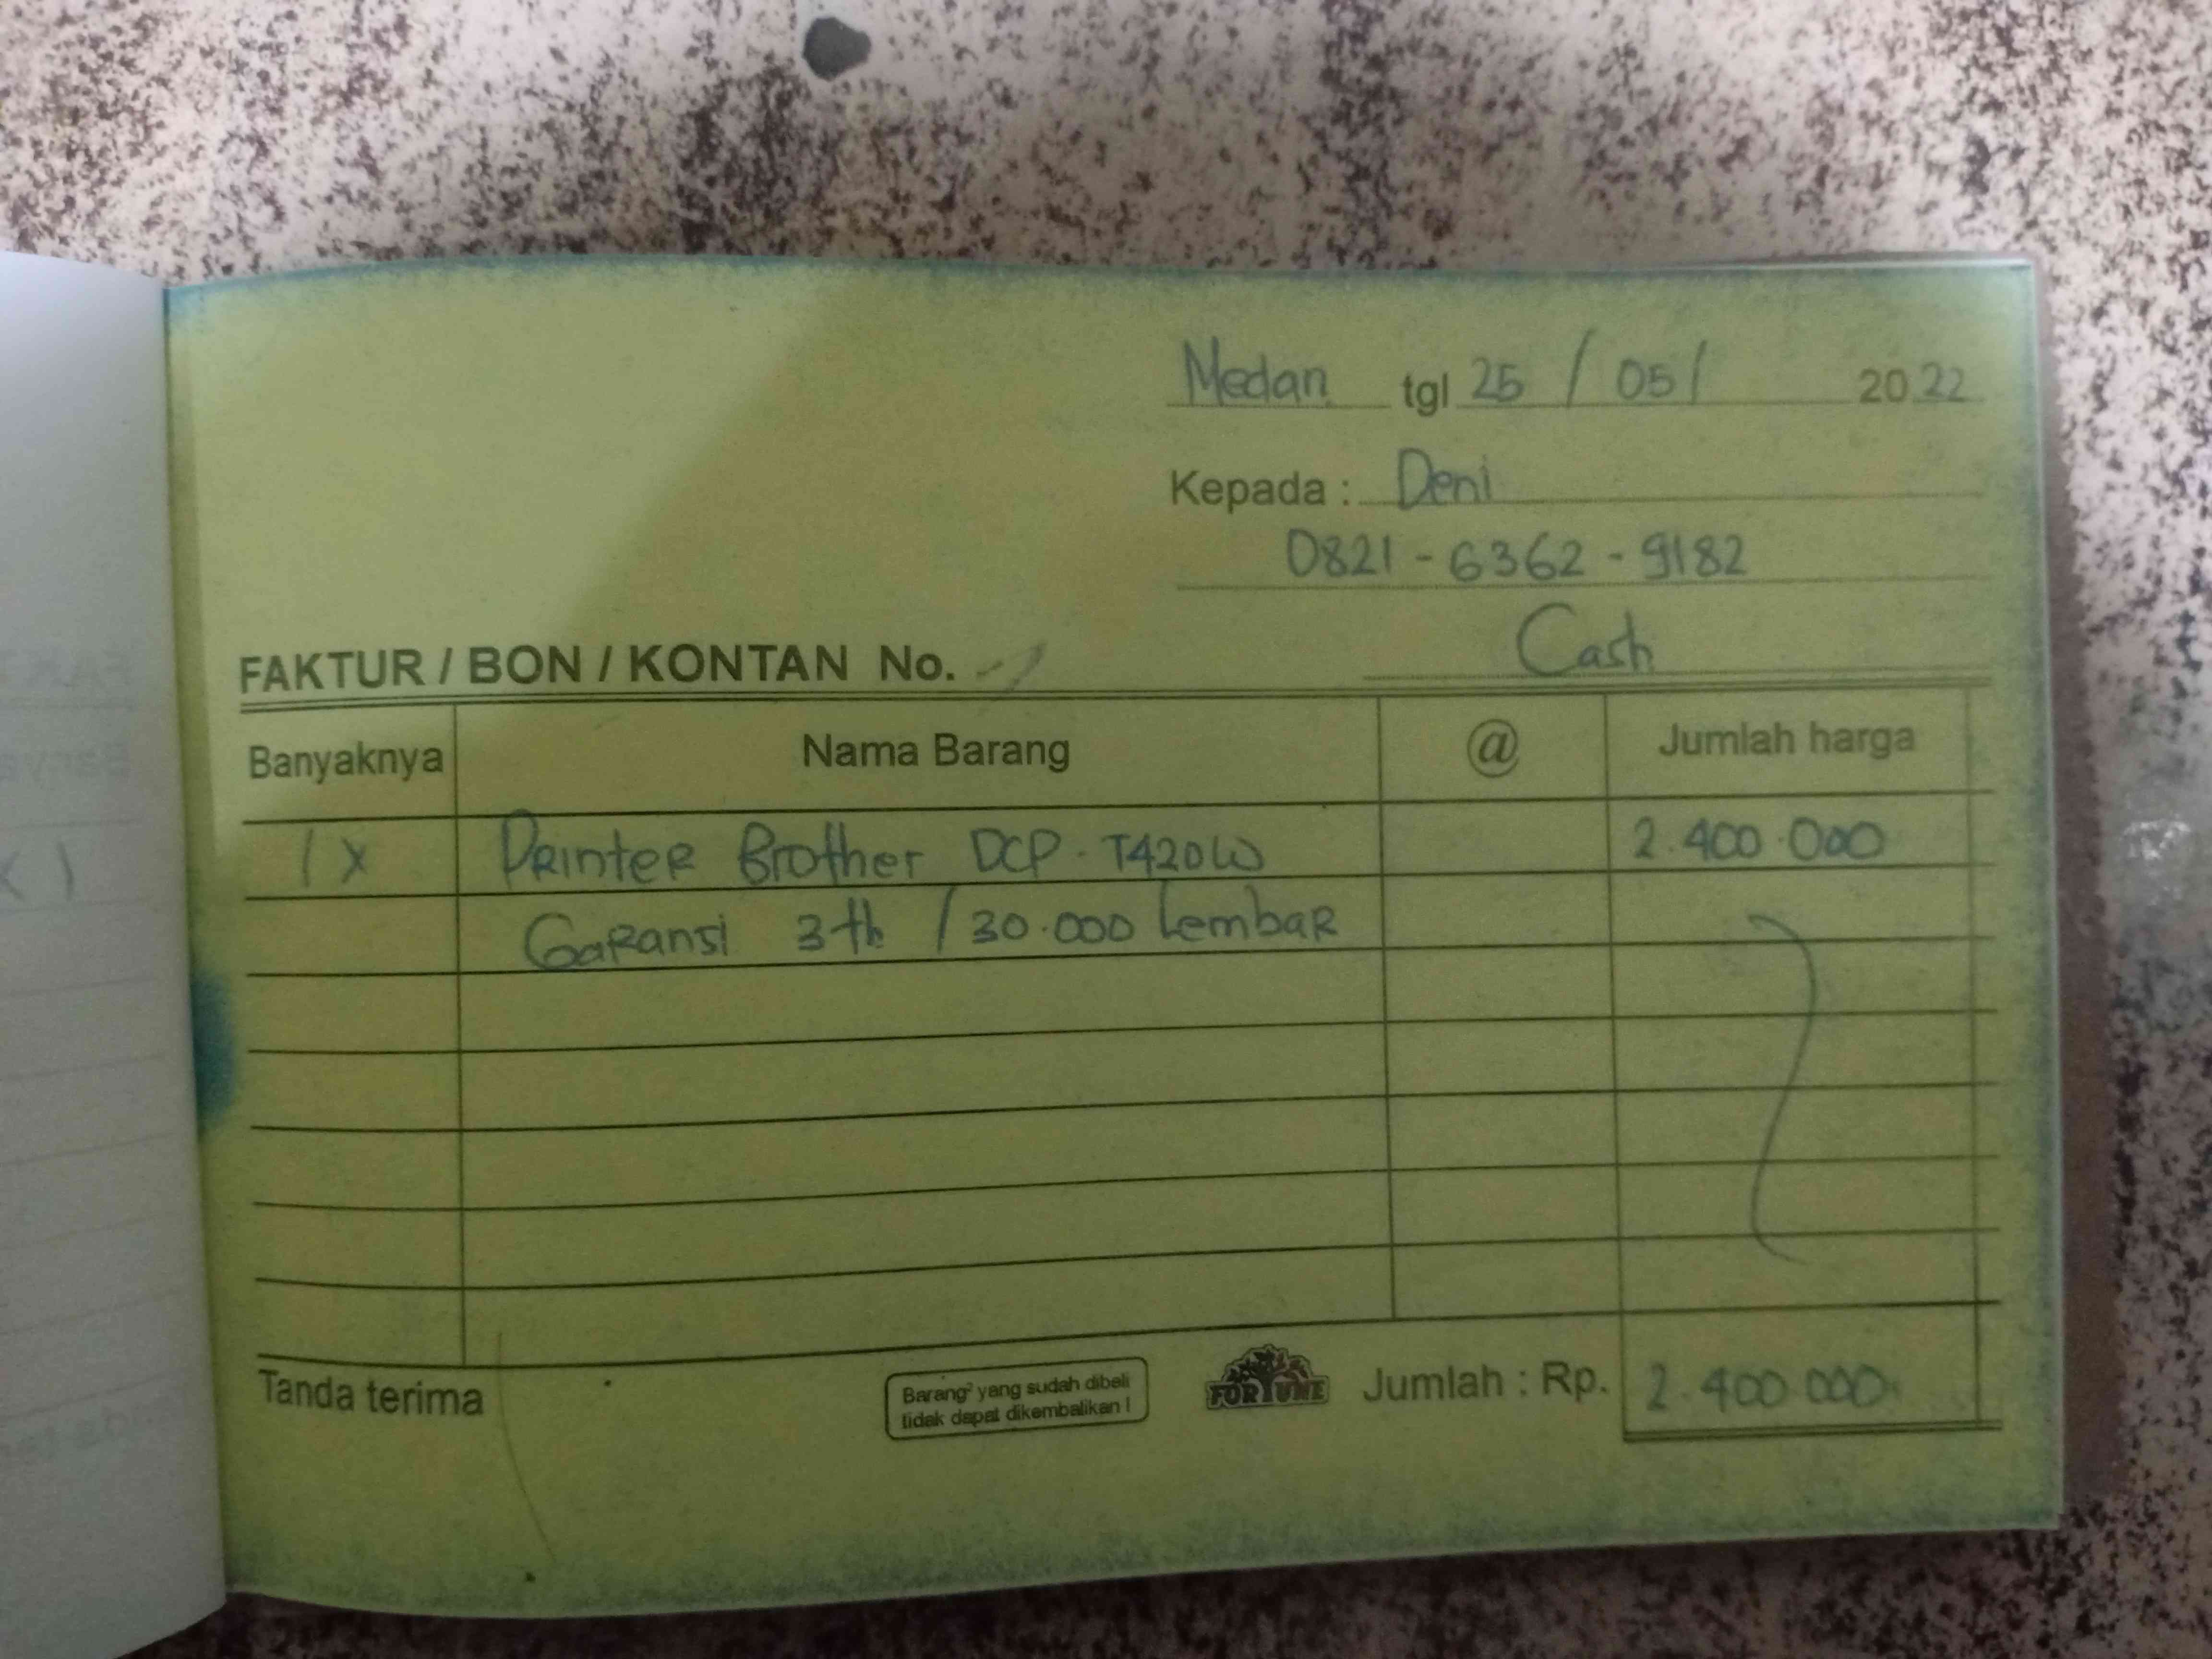 Medan tgl 25 / 05 / 2022
Kepada : Deni
0821 - 6362 - 9182
Cash
FAKTUR / BON / KONTAN No.
Banyaknya Nama Barang @ Jumlah harga
1 X Printer Brother DCP - T420W 2.400.000
Garansi 3 th / 30.000 Lembar
Tanda terima
Barang² yang sudah dibeli
tidak dapat dikembalikan !
FORTUNE
Jumlah : Rp. 2.400.000